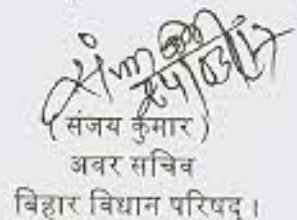 (संजय कुमार)
अवर सचिव
बिहार विधान परिषद्।